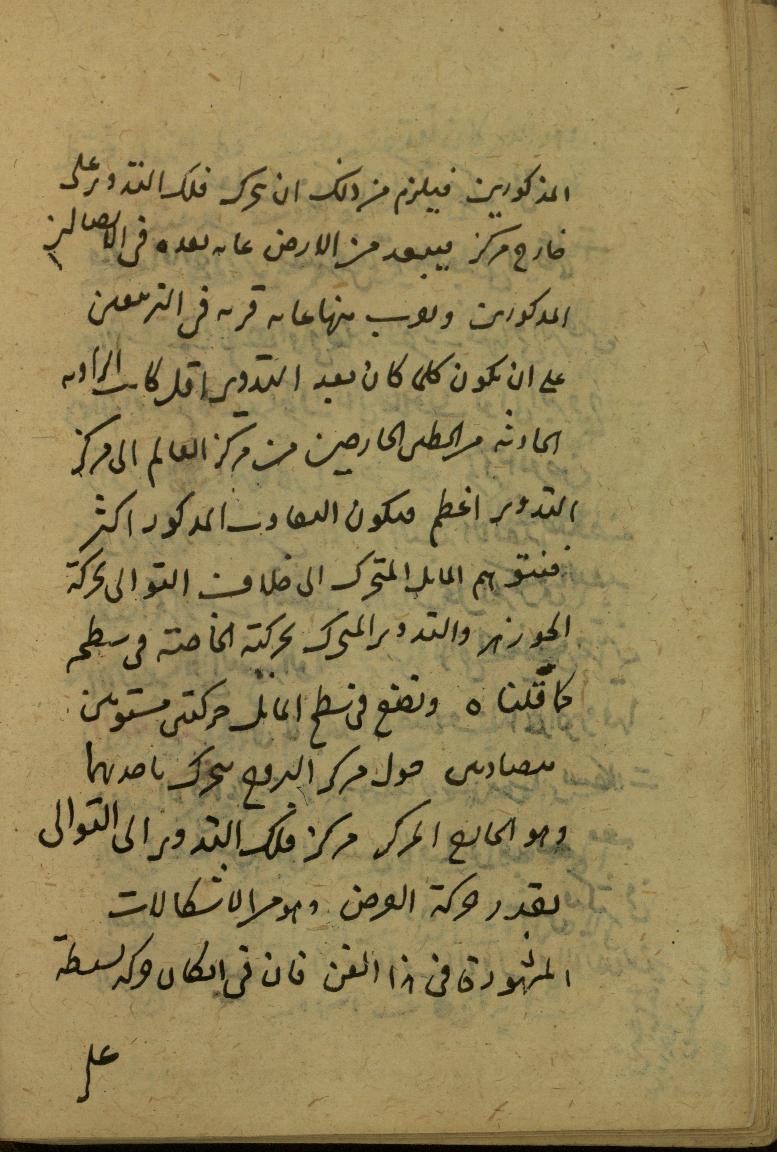 المذكورين فيلزم من ذلك ان يحرك فلك التدوير على
خارج مركز يبعد من الارض غاية بعده فى الاتصالين
المذكورين ويقرب منها غاية قربه فى التربيعين
على ان يكون كلما كان بعد التدوير اقل كانت الزاوية
الحادثة من الخطين الخارجين من مركز العالم الى مركز
التدوير اعظم فيكون التفاوت المذكور اكثر
فنتوهم المايل المتحرك الى خلاف التوالى بحركة
الجوزهر والتدوير المتحرك بحركته الخاصة فى سطحه
كما قلناه ونضع فى سطح المائل حركتين مستويتين
متضادتين حول مركز البروج يتحرك باحديهما
وهو الخارج المركز مركز فلك التدوير الى التوالى
بقدر حركة العرض وهو من الاشكالات
المشهورة فى هذا الفن فان فى امكان حركة بسيطة
على